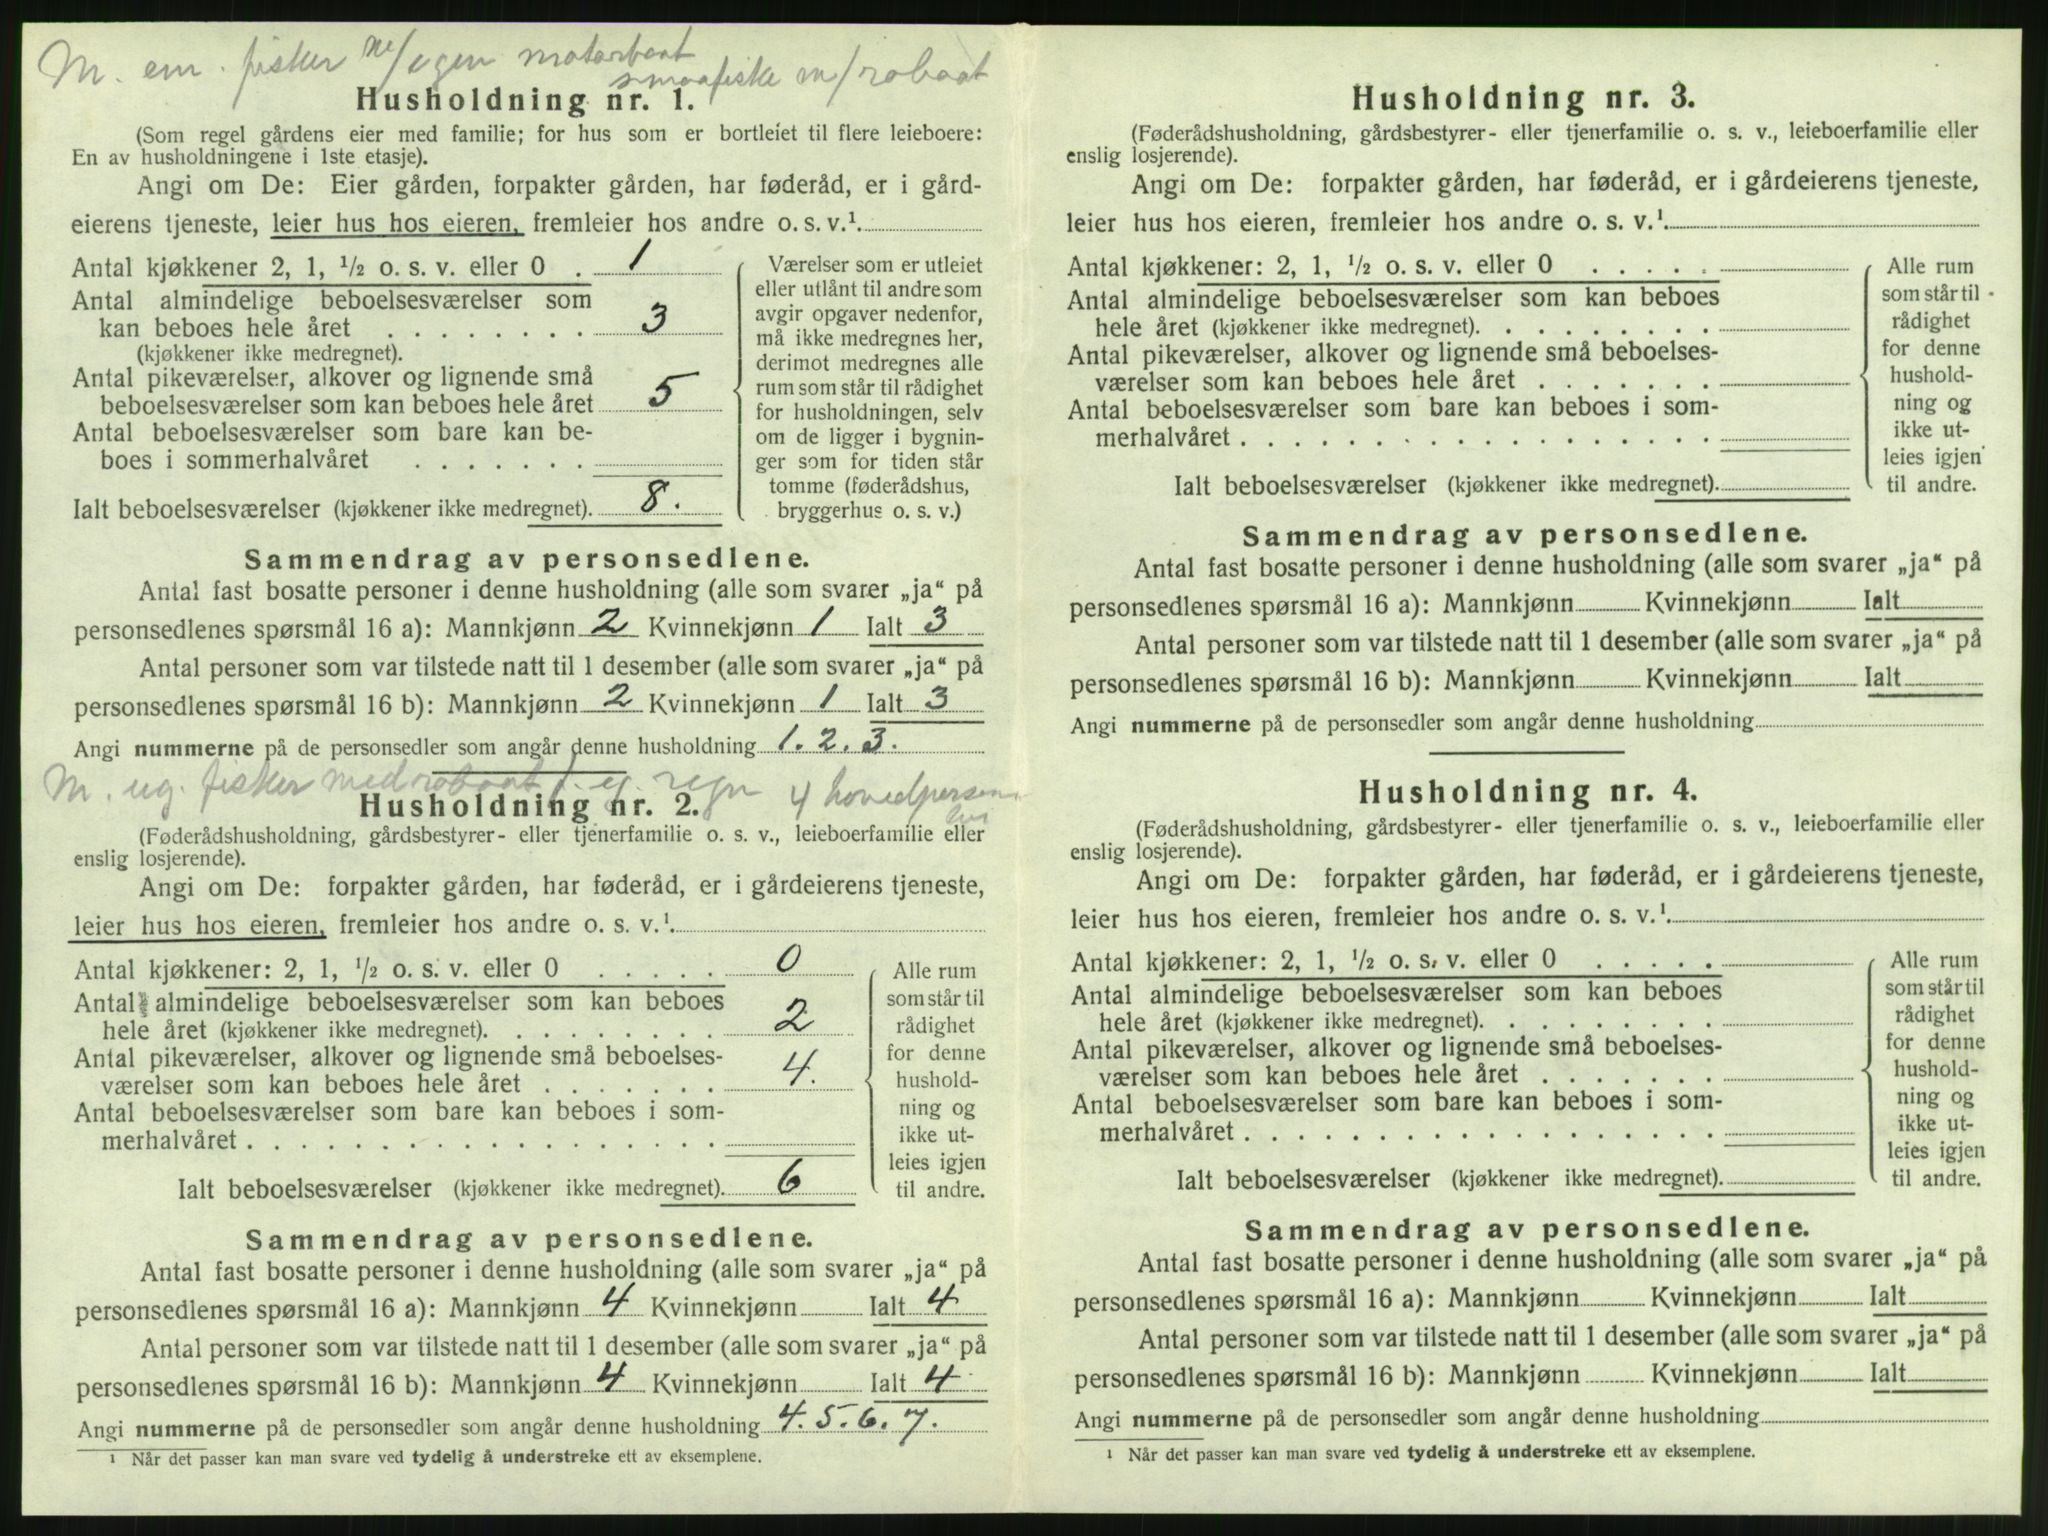 M. em. fisker m/egen motorbaat
smaafiske m/robaat
Husholdning nr. 1.
(Som regel gårdens eier med familie; for hus som er bortleiet til flere leieboere:
En av husholdningene i 1ste etasje).
Angi om De: Eier gården, forpakter gården, har føderåd, er i gård-
eierens tjeneste, leier hus hos eieren, fremleier hos andre o. s. v.¹.
Antal kjøkkener 2, 1, ½ o. s. v. eller 0 . 1
Antal almindelige beboelsesværelser som
kan beboes hele året . . . . . . . . 3
(kjøkkener ikke medregnet).
Antal pikeværelser, alkover og lignende små
beboelsesværelser som kan beboes hele året 5
Antal beboelsesværelser som bare kan be-
boes i sommerhalvåret . . . . . . .
Ialt beboelsesværelser (kjøkkener ikke medregnet). 8.
Værelser som er utleiet
eller utlånt til andre som
avgir opgaver nedenfor,
må ikke medregnes her,
derimot medregnes alle
rum som står til rådighet
for husholdningen, selv
om de ligger i bygnin-
ger som for tiden står
tomme (føderådshus,
bryggerhus o. s. v.)
Sammendrag av personsedlene.
Antal fast bosatte personer i denne husholdning (alle som svarer „ja“ på
personsedlenes spørsmål 16 a): Mannkjønn 2 Kvinnekjønn 1 Ialt 3
Antal personer som var tilstede natt til 1 desember (alle som svarer „ja“ på
personsedlenes spørsmål 16 b): Mannkjønn 2 Kvinnekjønn 1 Ialt 3
Angi nummerne på de personsedler som angår denne husholdning 1. 2. 3.
M. ug. fisker med robaat f. eg. regn 4 hovedpersoner
Husholdning nr. 2.
(Føderådshusholdning, gårdsbestyrer- eller tjenerfamilie o. s. v., leieboerfamilie eller
enslig losjerende).
Angi om De: forpakter gården, har føderåd, er i gårdeierens tjeneste,
leier hus hos eieren, fremleier hos andre o. s. v.¹.
Antal kjøkkener: 2, 1, ½ o. s. v. eller 0 . . . . . 0
Antal almindelige beboelsesværelser som kan beboes
hele året (kjøkkener ikke medregnet). . . . . . . . . 2
Antal pikeværelser, alkover og lignende små beboelses-
værelser som kan beboes hele året . . . . . . . 4.
Antal beboelsesværelser som bare kan beboes i som-
merhalvåret . . . . . . . . . . . . . . . . . .
Ialt beboelsesværelser (kjøkkener ikke medregnet). 6
Alle rum
som står til
rådighet
for denne
hushold-
ning og
ikke ut-
leies igjen
til andre.
Sammendrag av personsedlene.
Antal fast bosatte personer i denne husholdning (alle som svarer „ja“ på
personsedlenes spørsmål 16 a): Mannkjønn 4 Kvinnekjønn Ialt 4
Antal personer som var tilstede natt til 1 desember (alle som svarer „ja“ på
personsedlenes spørsmål 16 b): Mannkjønn 4 Kvinnekjønn Ialt 4
Angi nummerne på de personsedler som angår denne husholdning 4. 5. 6. 7.
¹ Når det passer kan man svare ved tydelig å understreke ett av eksemplene.
Husholdning nr. 3.
(Føderådshusholdning, gårdsbestyrer- eller tjenerfamilie o. s. v., leieboerfamilie eller
enslig losjerende).
Angi om De: forpakter gården, har føderåd, er i gårdeierens tjeneste,
leier hus hos eieren, fremleier hos andre o. s. v.¹.
Antal kjøkkener: 2, 1, ½ o. s. v. eller 0 . . . . .
Antal almindelige beboelsesværelser som kan beboes
hele året (kjøkkener ikke medregnet). . . . . . . . .
Antal pikeværelser, alkover og lignende små beboelses-
værelser som kan beboes hele året . . . . . . .
Antal beboelsesværelser som bare kan beboes i som-
merhalvåret . . . . . . . . . . . . . . . . . .
Ialt beboelsesværelser (kjøkkener ikke medregnet).
Alle rum
som står til
rådighet
for denne
hushold-
ning og
ikke ut-
leies igjen
til andre.
Sammendrag av personsedlene.
Antal fast bosatte personer i denne husholdning (alle som svarer „ja“ på
personsedlenes spørsmål 16 a): Mannkjønn Kvinnekjønn Ialt
Antal personer som var tilstede natt til 1 desember (alle som svarer „ja“ på
personsedlenes spørsmål 16 b): Mannkjønn Kvinnekjønn Ialt
Angi nummerne på de personsedler som angår denne husholdning
Husholdning nr. 4.
(Føderådshusholdning, gårdsbestyrer- eller tjenerfamilie o. s. v., leieboerfamilie eller
enslig losjerende).
Angi om De: forpakter gården, har føderåd, er i gårdeierens tjeneste,
leier hus hos eieren, fremleier hos andre o. s. v.¹.
Antal kjøkkener: 2, 1, ½ o. s. v. eller 0 . . . . .
Antal almindelige beboelsesværelser som kan beboes
hele året (kjøkkener ikke medregnet). . . . . . . . .
Antal pikeværelser, alkover og lignende små beboelses-
værelser som kan beboes hele året . . . . . . .
Antal beboelsesværelser som bare kan beboes i som-
merhalvåret . . . . . . . . . . . . . . . . . .
Ialt beboelsesværelser (kjøkkener ikke medregnet).
Alle rum
som står til
rådighet
for denne
hushold-
ning og
ikke ut-
leies igjen
til andre.
Sammendrag av personsedlene.
Antal fast bosatte personer i denne husholdning (alle som svarer „ja“ på
personsedlenes spørsmål 16 a): Mannkjønn Kvinnekjønn Ialt
Antal personer som var tilstede natt til 1 desember (alle som svarer „ja“ på
personsedlenes spørsmål 16 b): Mannkjønn Kvinnekjønn Ialt
Angi nummerne på de personsedler som angår denne husholdning
¹ Når det passer kan man svare ved tydelig å understreke ett av eksemplene.